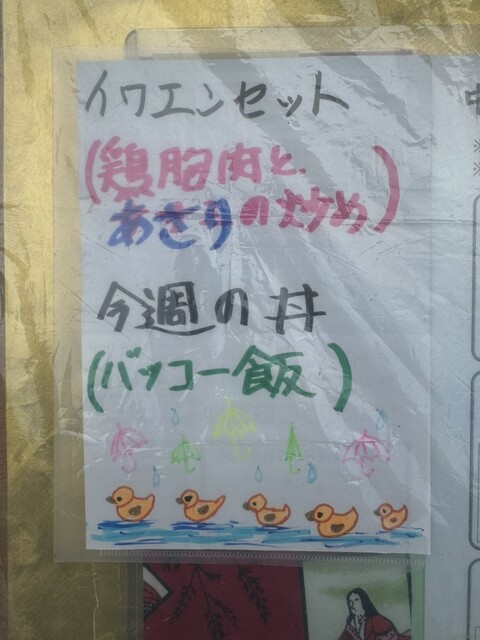 イワエンセット
(鶏胸肉と、
あさりの炒め)
今週の丼
(バッコー飯)